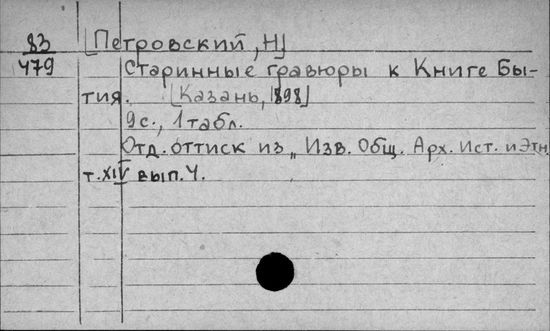 83
479
[Петровский, Н]
Старинные гравюры к Книге Бы-
тия. [Казань, 1898]
9 с., 1 табл.
Отд. оттиск из „Изв. Общ. Арх. Ист. и Этн
т. XIV вып. 4.